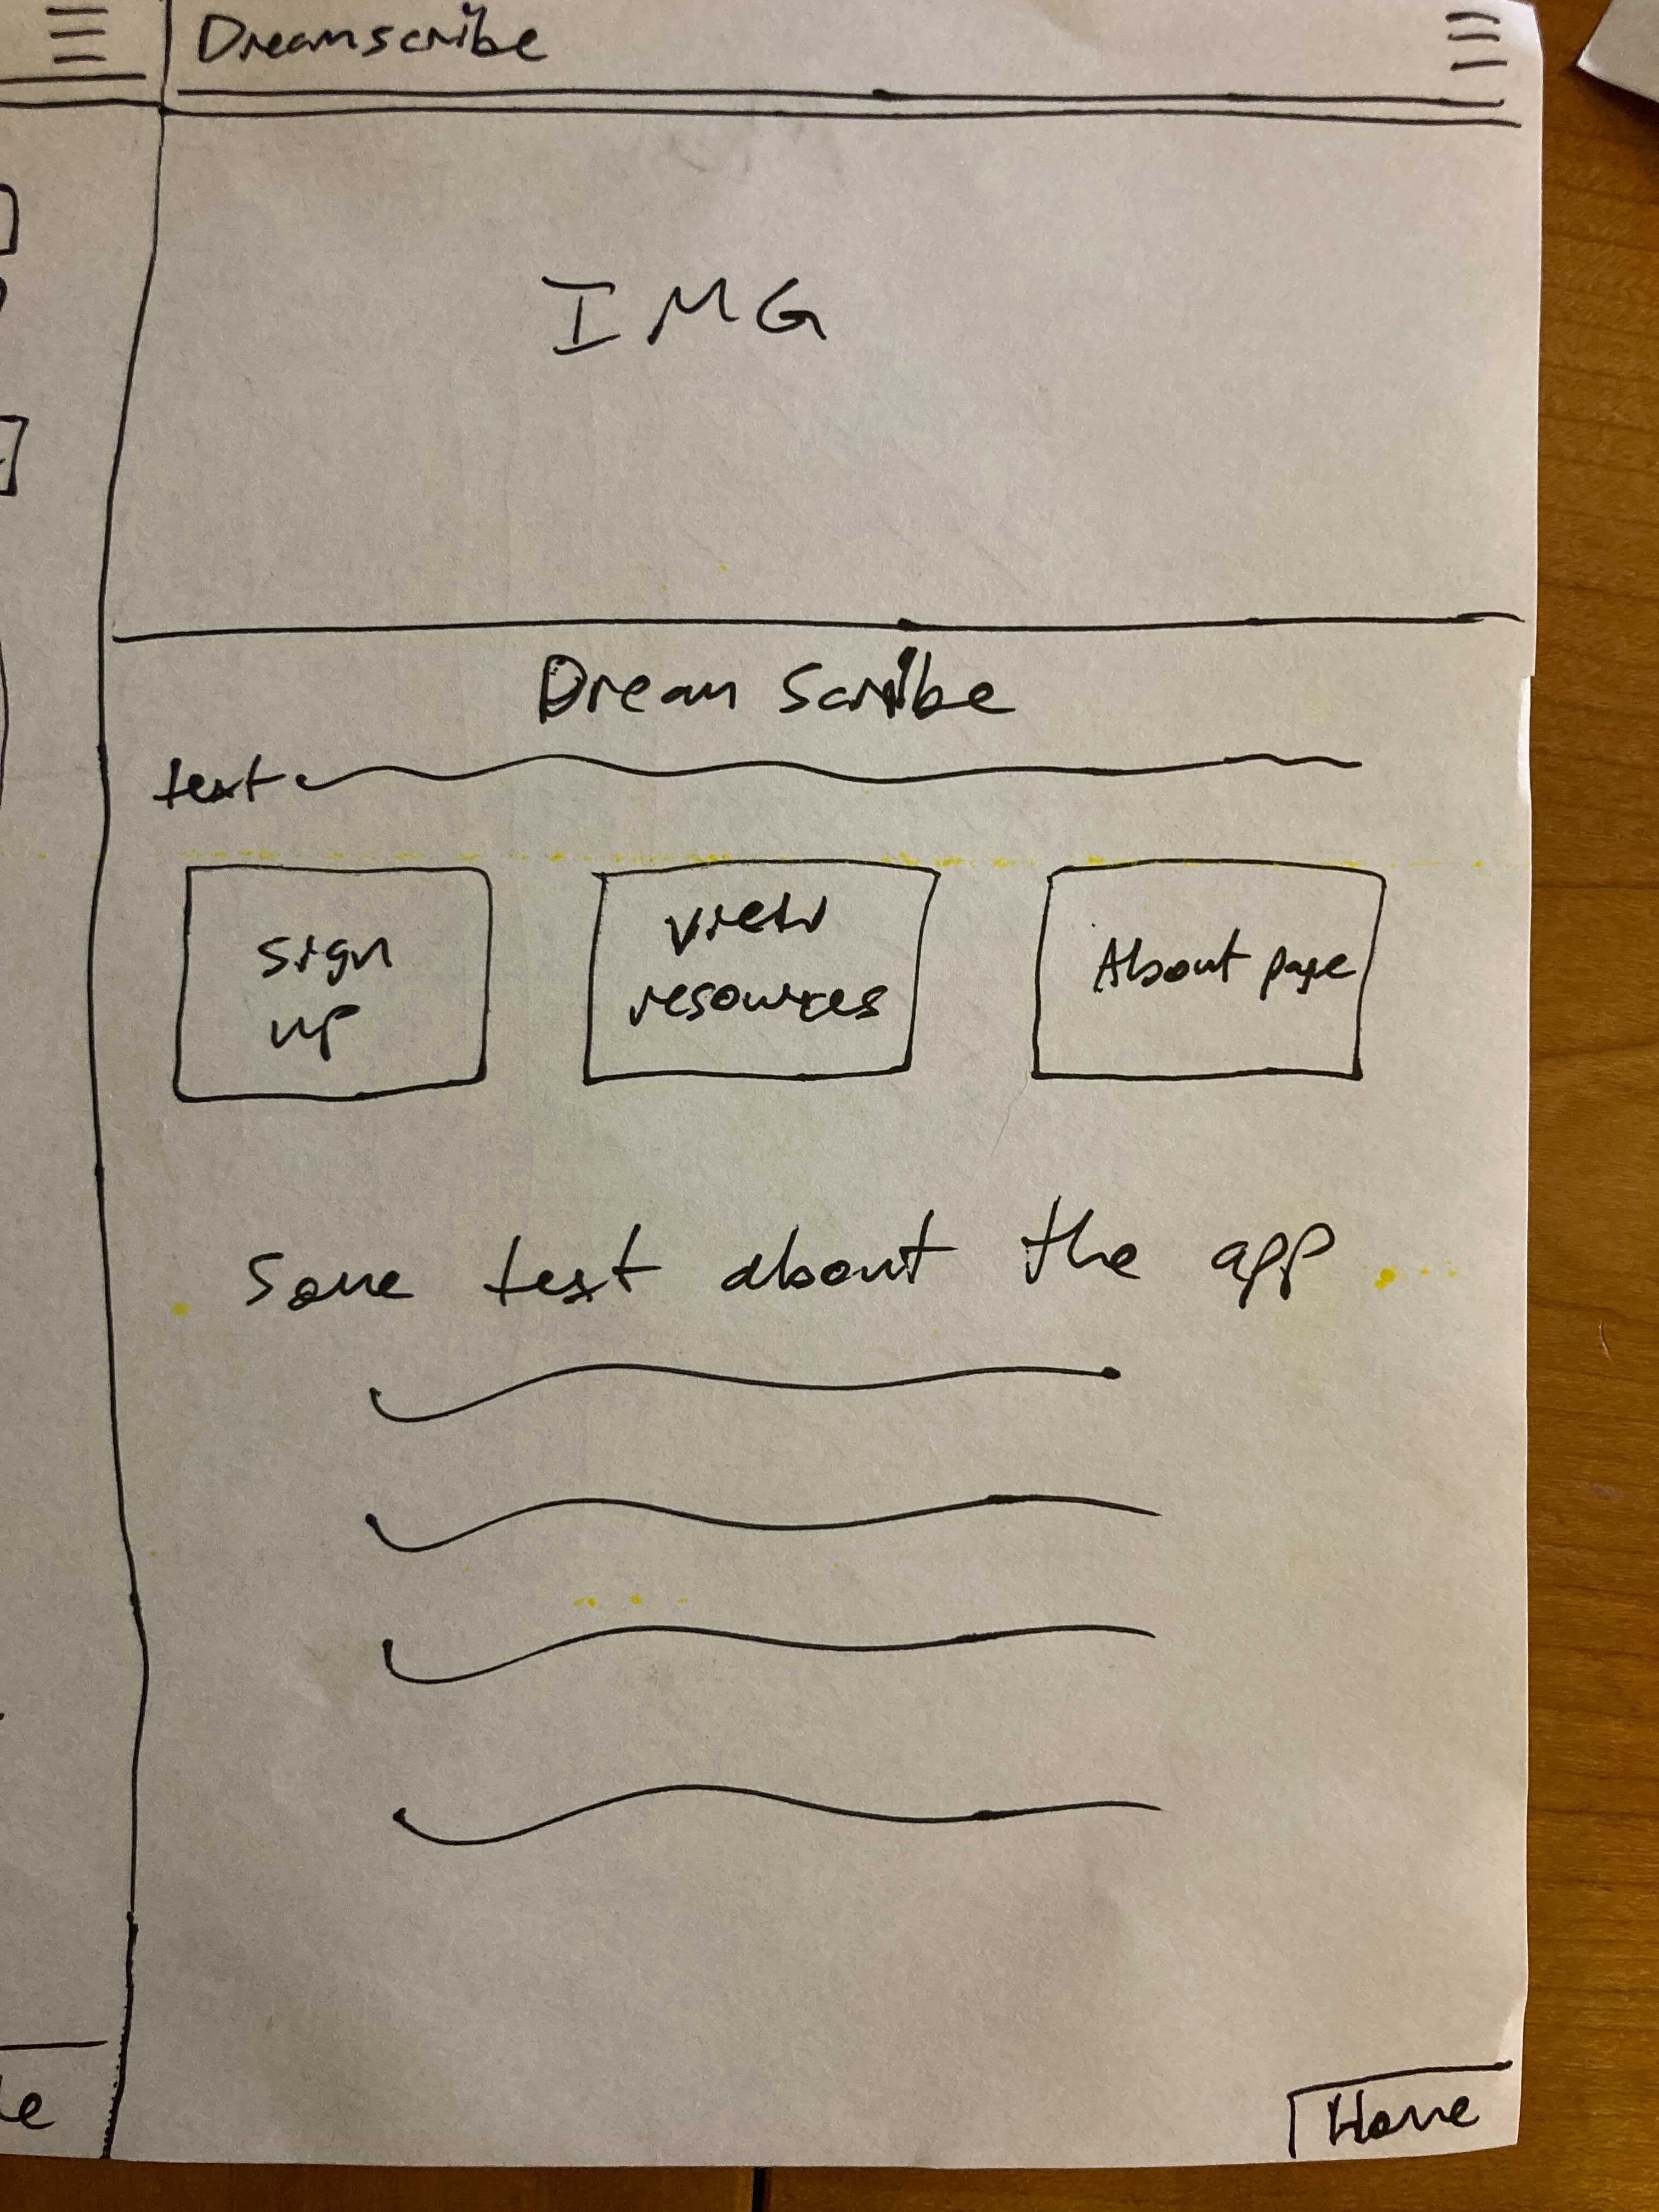 Dreamscribe
IMG
Dream Scribe
text
Sign
up
View
resources
About page
Some text about the app
Home